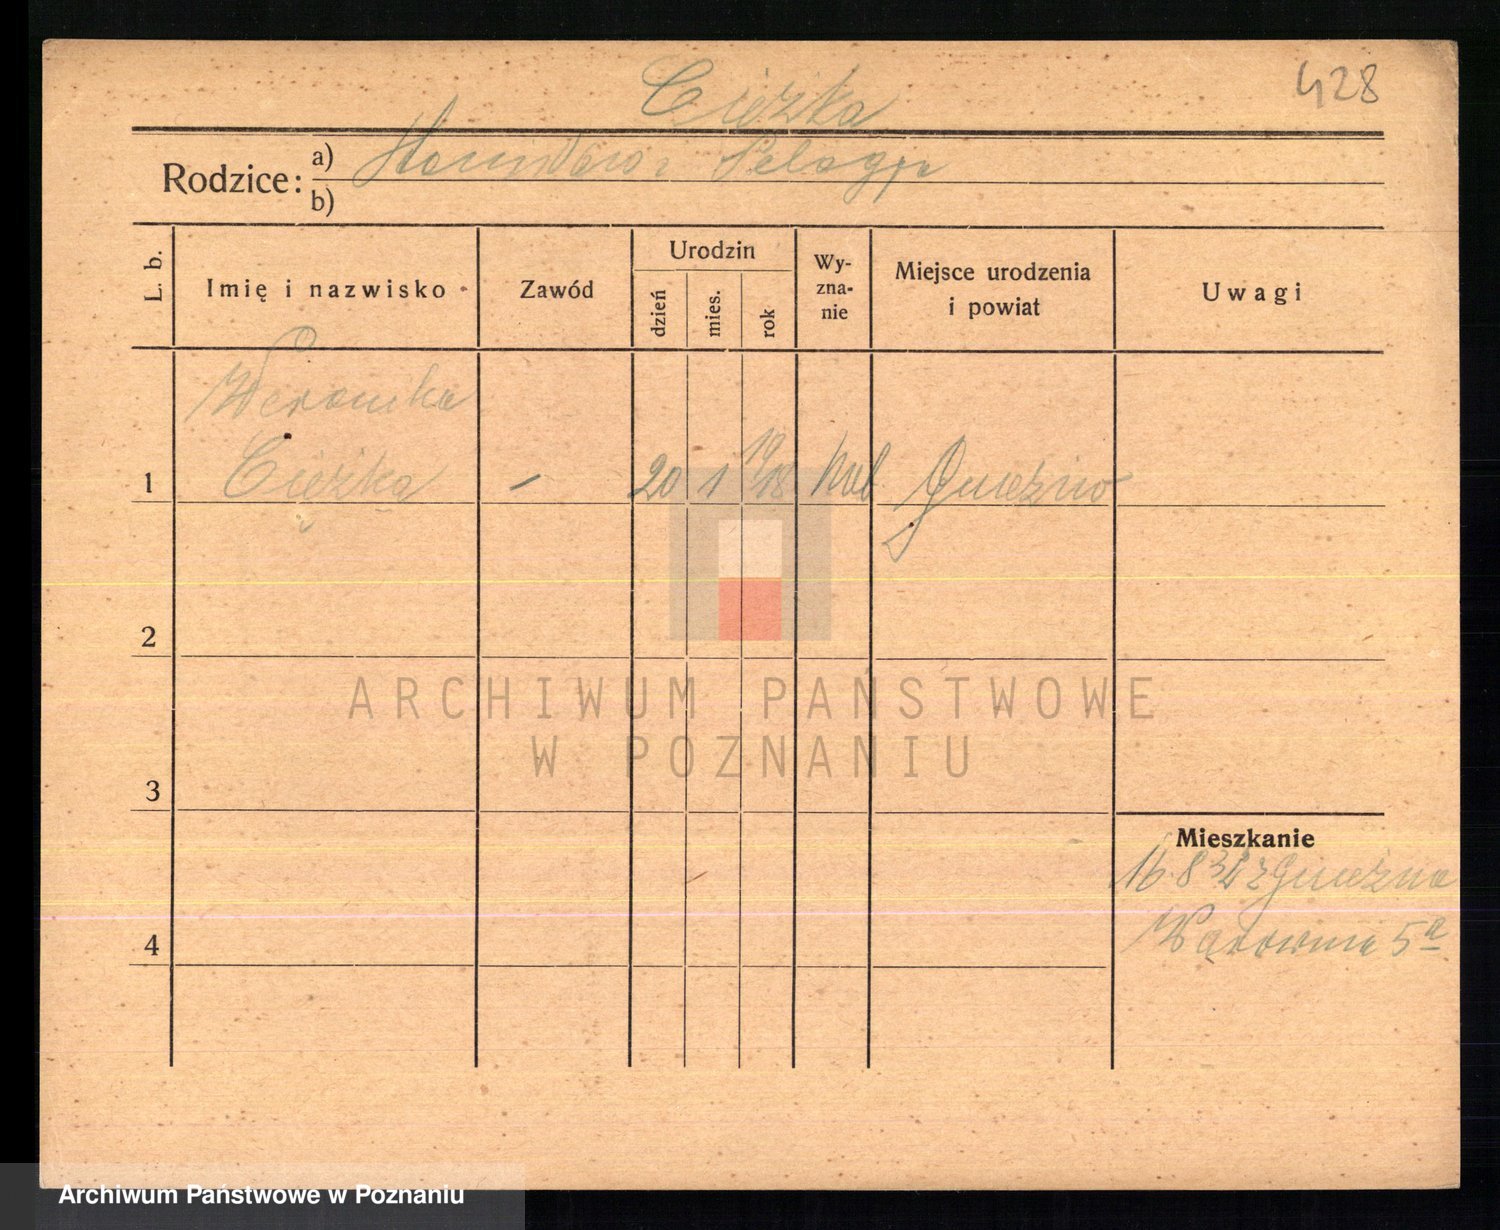 428
Ciężka
Rodzice: a) Stanisław i Pelagja
b)
L. b.
Imię i nazwisko
Zawód
Urodzin
dzień
mies.
rok
Wy-
zna-
nie
Miejsce urodzenia
i powiat
Uwagi
Weronika
1 Ciężka - 20 1 1918 Gniezno
2
3
4
Mieszkanie
16.8 34 z Gniezna
5a
ARCHIWUM PAŃSTWOWE
W POZNANIU
Archiwum Państwowe w Poznaniu